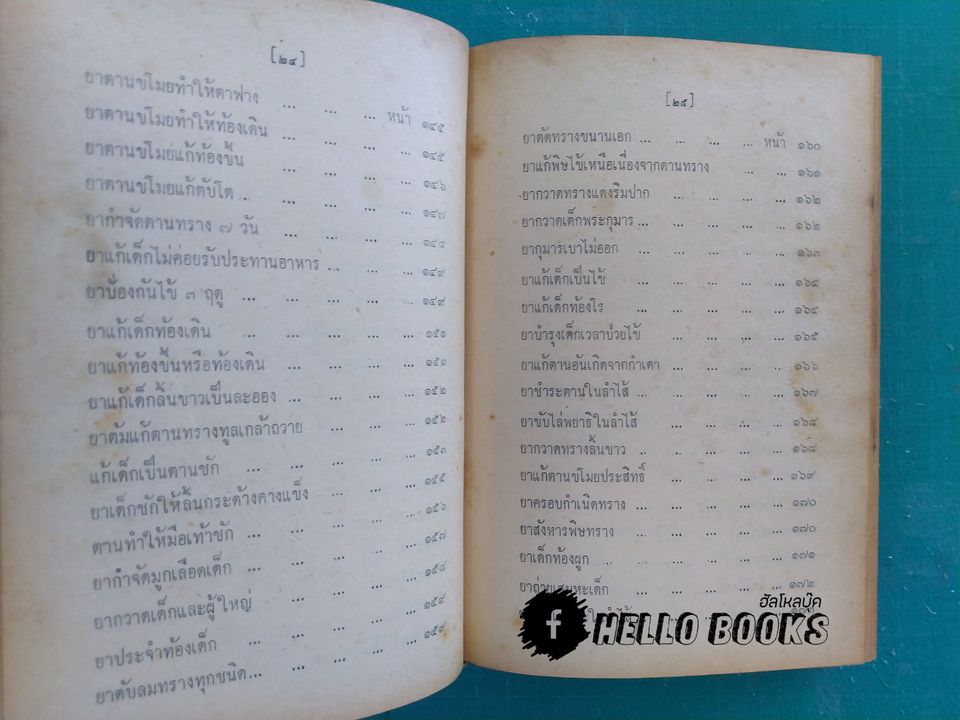 [๒๔]
ยาตานขโมยทำให้ตาฟาง ... ... ... หน้า ๑๔๕
ยาตานขโมยทำให้ท้องเดิน ... ... ... ... ๑๔๕
ยาตานขโมยแก้ท้องขึ้น ... ... ... ... ๑๔๖
ยาตานขโมยแก้ตับโต ... ... ... ... ๑๔๗
ยากำจัดตานทราง ๗ วัน ... ... ... ... ๑๔๘
ยาแก้เด็กไม่ค่อยรับประทานอาหาร ... ... ... ๑๔๙
ยาป้องกันไข้ ๓ ฤดู ... ... ... ... ๑๔๙
ยาแก้เด็กท้องเดิน ... ... ... ... ๑๕๑
ยาแก้ท้องขึ้นหรือท้องเดิน ... ... ... ... ๑๕๑
ยาแก้เด็กลิ้นขาวเป็นละออง ... ... ... ... ๑๕๒
ยาต้มแก้ตานทรางทูลเกล้าถวาย ... ... ... ๑๕๒
แก้เด็กเป็นตานชัก ... ... ... ... ... ๑๕๓
ยาเด็กชักให้ลิ้นกระด้างคางแข็ง ... ... ... ๑๕๕
ตานทำให้มือเท้าชัก ... ... ... ... ๑๕๖
ยากำจัดมูกเลือดเด็ก ... ... ... ... ๑๕๗
ยากวาดเด็กและผู้ใหญ่ ... ... ... ... ๑๕๘
ยาประจำท้องเด็ก ... ... ... ... ๑๕๙
ยาดับลมทรางทุกชนิด ... ... ... ... ๑๕๙
[๒๕]
ยาตัดทรางขนานเอก ... ... ... ... หน้า ๑๖๐
ยาแก้พิษไข้เหนือเนื่องจากตานทราง ... ... ๑๖๑
ยากวาดทรางแดงริมปาก ... ... ... ... ๑๖๒
ยากวาดเด็กพระกุมาร ... ... ... ... ๑๖๒
ยากุมารเบาไม่ออก ... ... ... ... ๑๖๓
ยาแก้เด็กเป็นไข้ ... ... ... ... ๑๖๔
ยาแก้เด็กท้องโร ... ... ... ... ๑๖๔
ยาบำรุงเด็กเวลาป่วยไข้ ... ... ... ... ๑๖๕
ยาแก้ตานอันเกิดจากกำเดา ... ... ... ... ๑๖๖
ยาชำระตานในลำไส้ ... ... ... ... ๑๖๗
ยาขับไล่พยาธิในลำไส้ ... ... ... ... ๑๖๘
ยากวาดทรางลิ้นขาว ... ... ... ... ๑๖๘
ยาแก้ตานขโมยประสิทธิ์ ... ... ... ... ๑๖๙
ยาครอบกำเนิดทราง ... ... ... ... ๑๗๐
ยาสังหารพิษทราง ... ... ... ... ๑๗๐
ยาเด็กท้องผูก ... ... ... ... ๑๗๑
ยาถ่ายเสมหะเด็ก ... ... ... ... ๑๗๒
ฮัลโหลบุ๊ค
f HELLO BOOKS